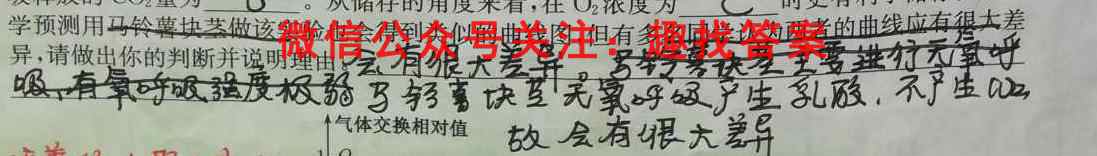 释放的CO₂量为 b 。从储存的角度来看,在O₂浓度为 C 时更有利于
学预测用马铃薯块茎做该实验 会得到类似的曲线图,但有 同 认为两者的曲线应有很大差
微信公众号关注:趣找答案
异,请做出你的判断并说明理由:会有很大差异。马铃薯块茎主要进行无氧呼
吸,有氧呼吸强度极弱 马铃薯块茎无氧呼吸产生乳酸,不产生CO₂
气体交换相对值
故会有很大差异